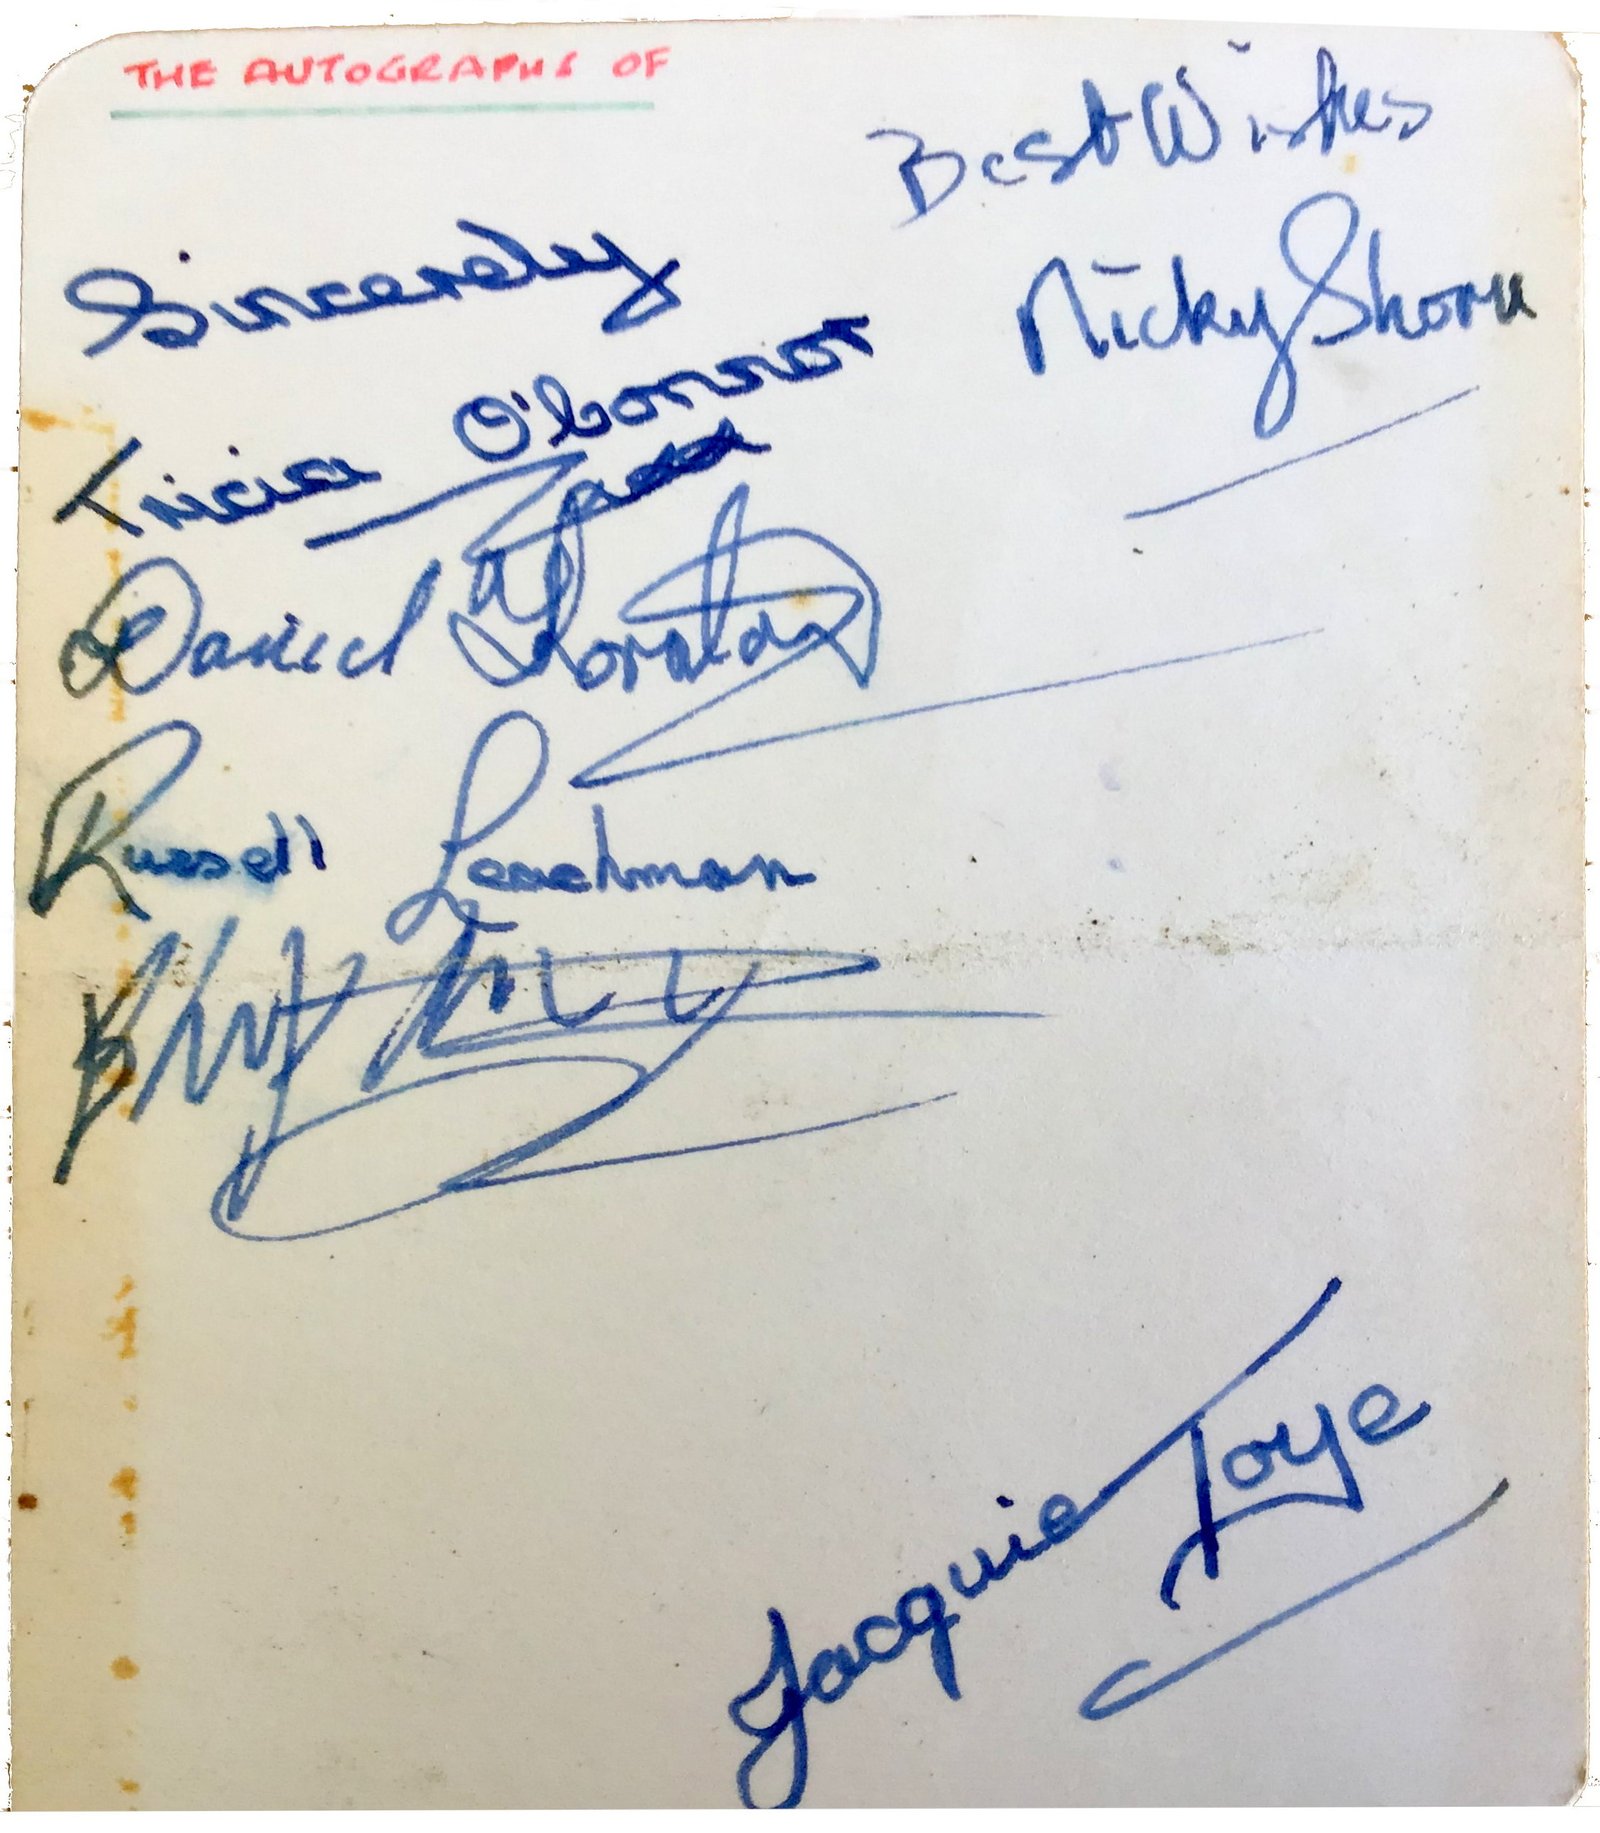 THE AUTOGRAPHS OF
Best Wishes
Nicky Shorn
Sincerely
Tricia O'Connor
Daniel Thorndon
Russell Leachman
Jacquie Toye